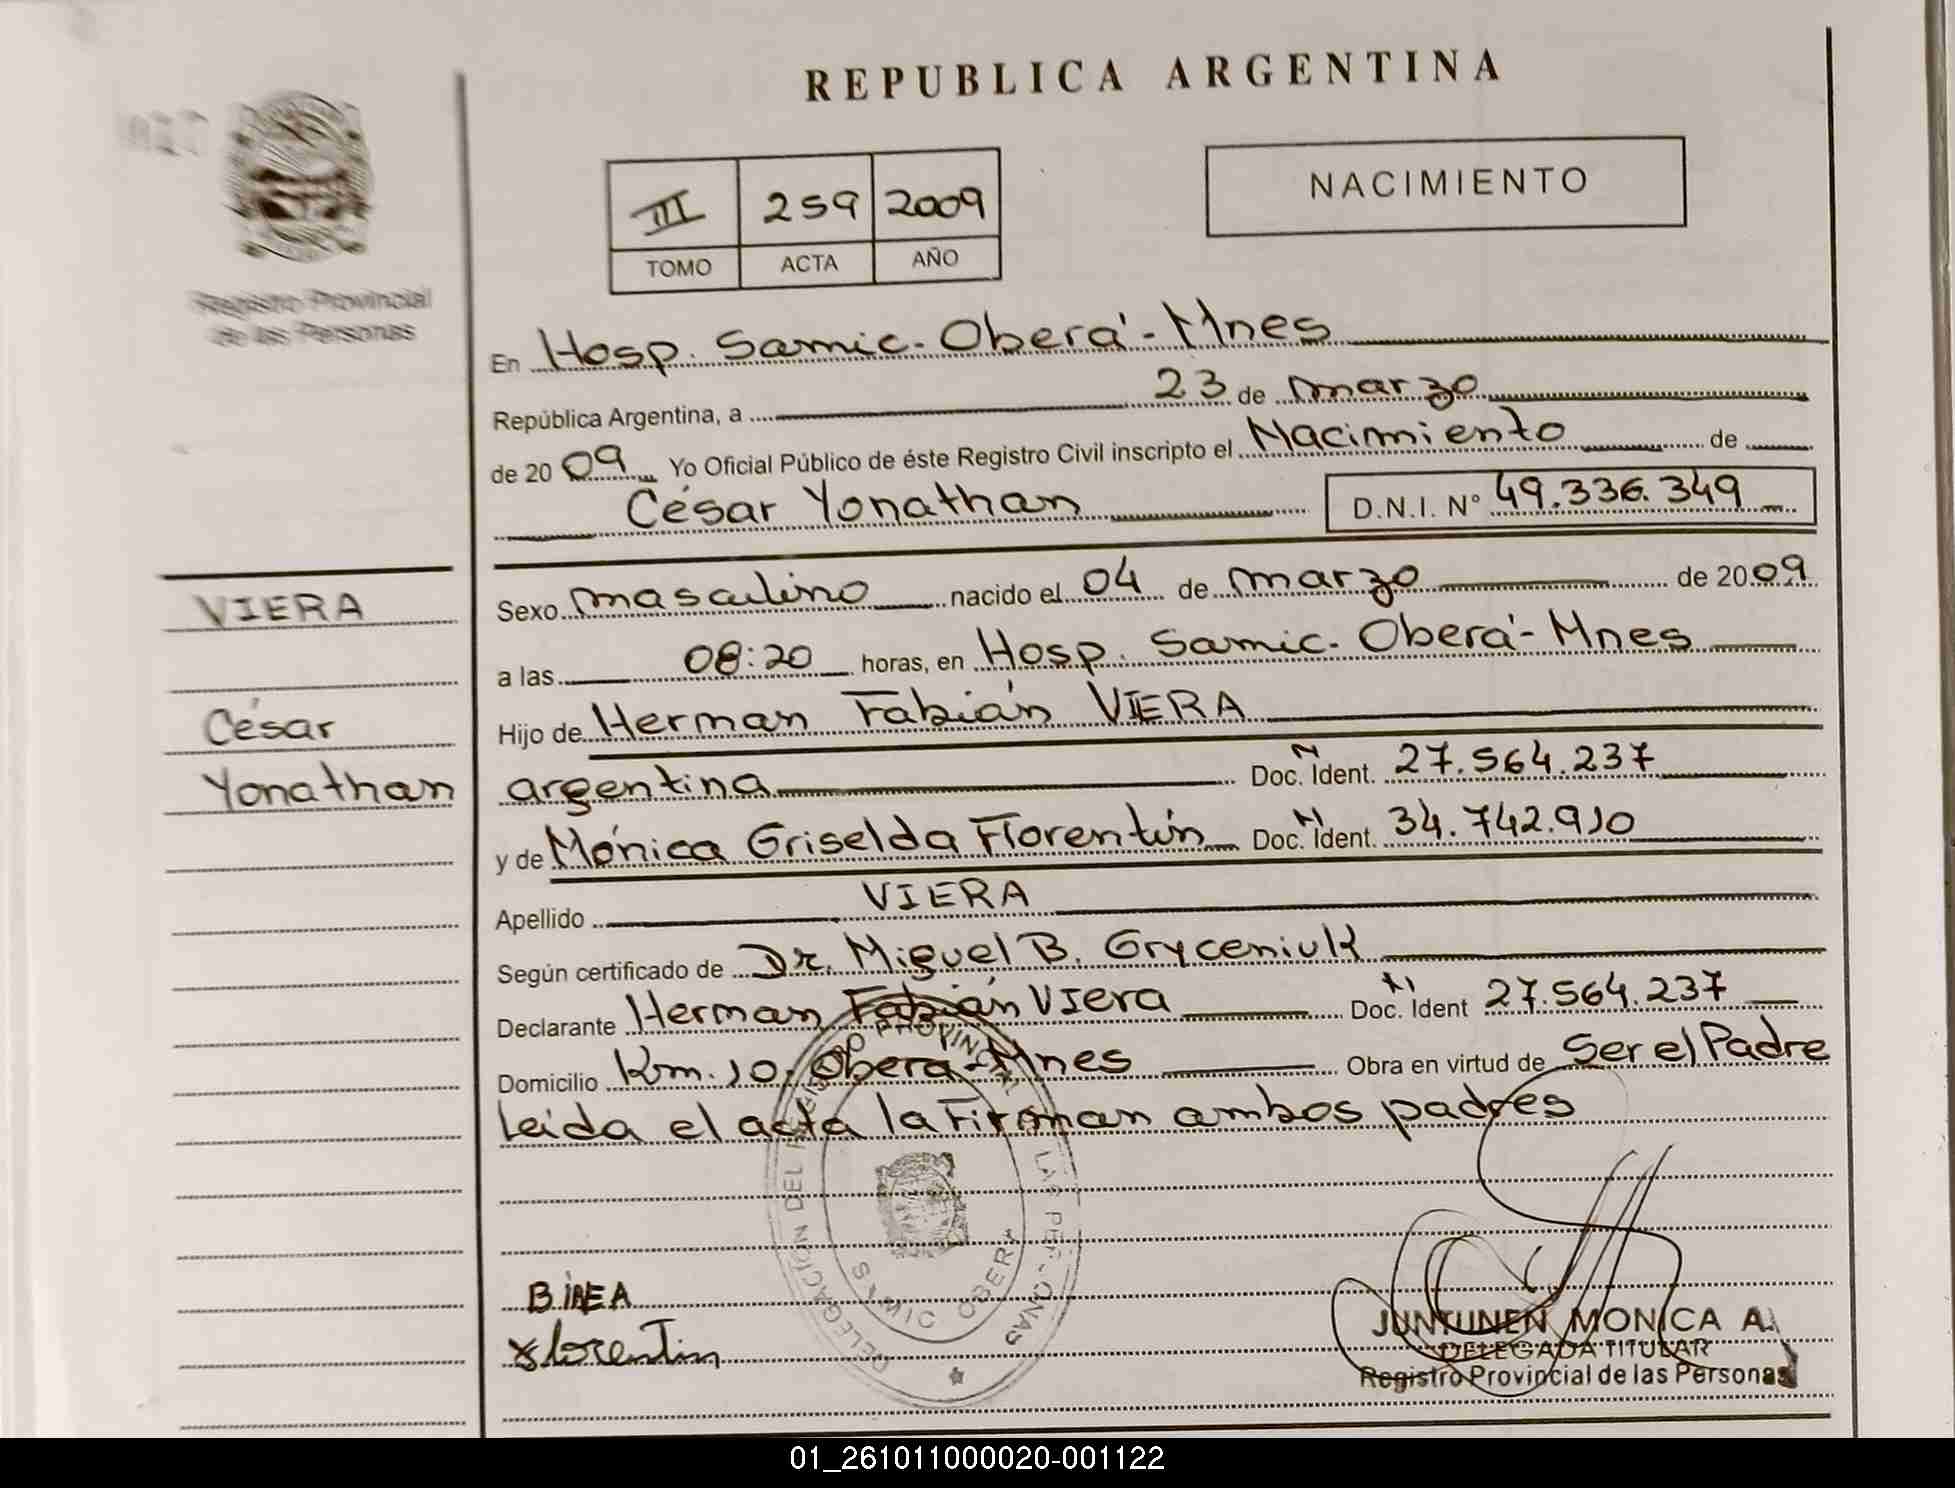 REPUBLICA ARGENTINA
Registro Provincial
de las Personas
III 259 2009
TOMO ACTA AÑO
NACIMIENTO
En Hosp. Samic. Oberá - Mnes
República Argentina, a 23 de marzo
de 20 09 Yo Oficial Público de éste Registro Civil inscripto el Nacimiento de
César Yonathan D.N.I. Nº 49.336.349
VIERA
César
Yonathan
Sexo masculino nacido el 04 de marzo de 20 09
a las 08:20 horas, en Hosp. Samic. Oberá - Mnes
Hijo de Herman Fabián VIERA
argentina Doc. N Ident. 27.564.237
y de Mónica Griselda Florentín Doc. N Ident. 34.742.910
Apellido VIERA
Según certificado de Dr. Miguel B. Gryceniuk
Declarante Herman Fabián Viera Doc. N Ident 27.564.237
Domicilio Km. 10. Oberá - Mnes Obra en virtud de Ser el Padre
Leída el acta la Firman ambos padres
DELEGACIÓN DEL REGISTRO PROVINCIAL LAS PERSONAS
OBERA
Florentin
JUNTUNEN MONICA A.
DELEGADA TITULAR
Registro Provincial de las Personas
01_261011000020-001122